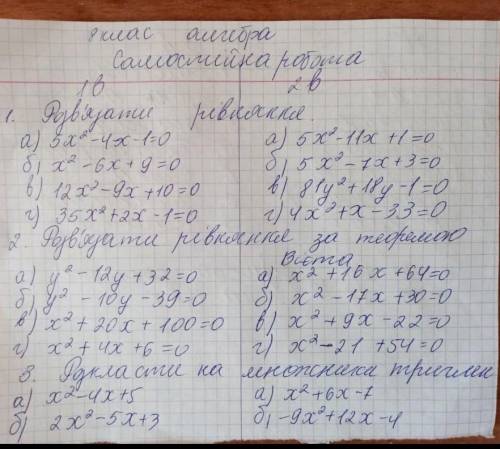 8 клас алгебра
Самостійна робота
1в 2в
1. Розв'язати рівняння.
а) 5x²-4x-1=0 а) 5x²-11x+1=0
б) x²-6x+9=0 б) 5x²-7x+3=0
в) 12x²-9x+10=0 в) 81y²+18y-1=0
г) 35x²+2x-1=0 г) 4x²+x-33=0
2. Розв'язати рівняння за теоремою
Вієта
а) y²-12y+32=0 а) x²+16x+64=0
б) y²-10y-39=0 б) x²-17x+30=0
в) x²+20x+100=0 в) x²+9x-22=0
г) x²+4x+6=0 г) x²-21+54=0
3. Розкласти на множники тричлен
а) x²-4x+5 а) x²+6x-7
б) 2x²-5x+3 б) -9x²+12x-4